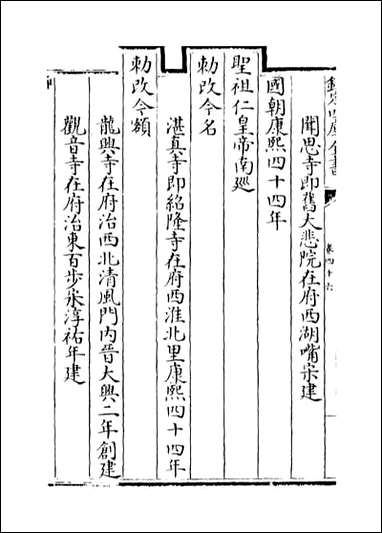 欽定四庫全書
卷四十六
聞思寺即舊大悲院在府西湖嘴宋建
國朝康熙四十四年
聖祖仁皇帝南廵
勅改今名
湛真寺即紹隆寺在府西淮北里康熙四十四年
勅改今額
龍興寺在府治西北清風門内晉大興二年創建
觀音寺在府治東百步宋淳祐年建